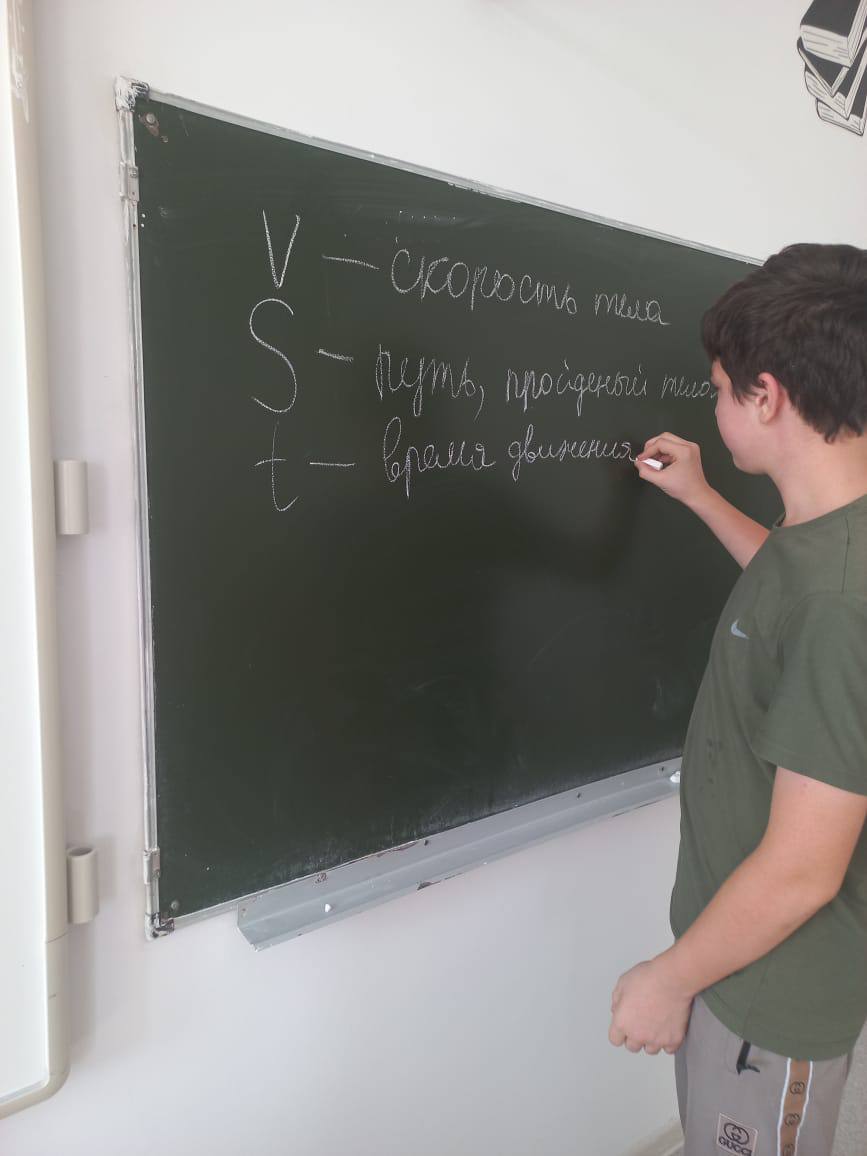 V — скорость тела
S — путь, пройденый тело
t — время движения
GUCCI